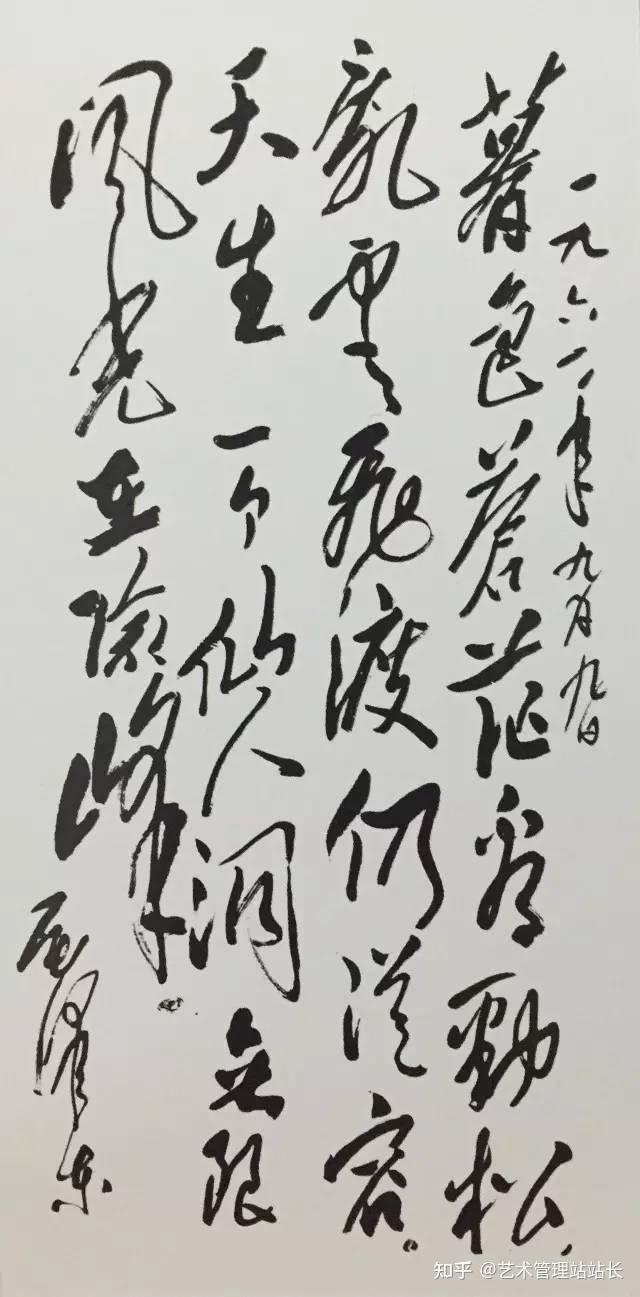 一九六一年九月九日
暮色苍茫看劲松，
乱云飞渡仍从容。
天生一个仙人洞无限
风光在险峰。
毛泽东
知乎 @艺术管理站站长